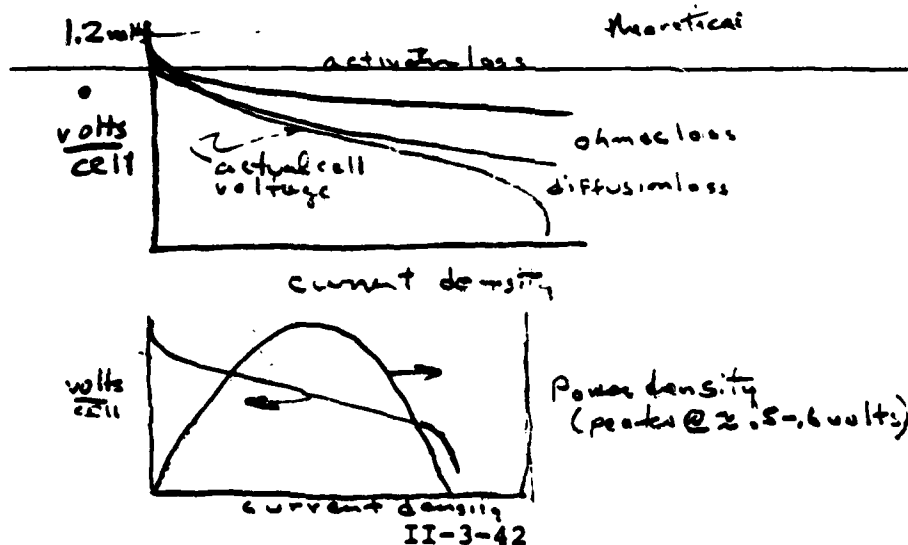 1.2 volts
theoretical
activation loss
volts
cell
ohmic loss
actual cell
voltage
diffusion loss
current density
volts
cell
Power density
(peaks @ ≈ .5-.6 volts)
current density
II-3-42